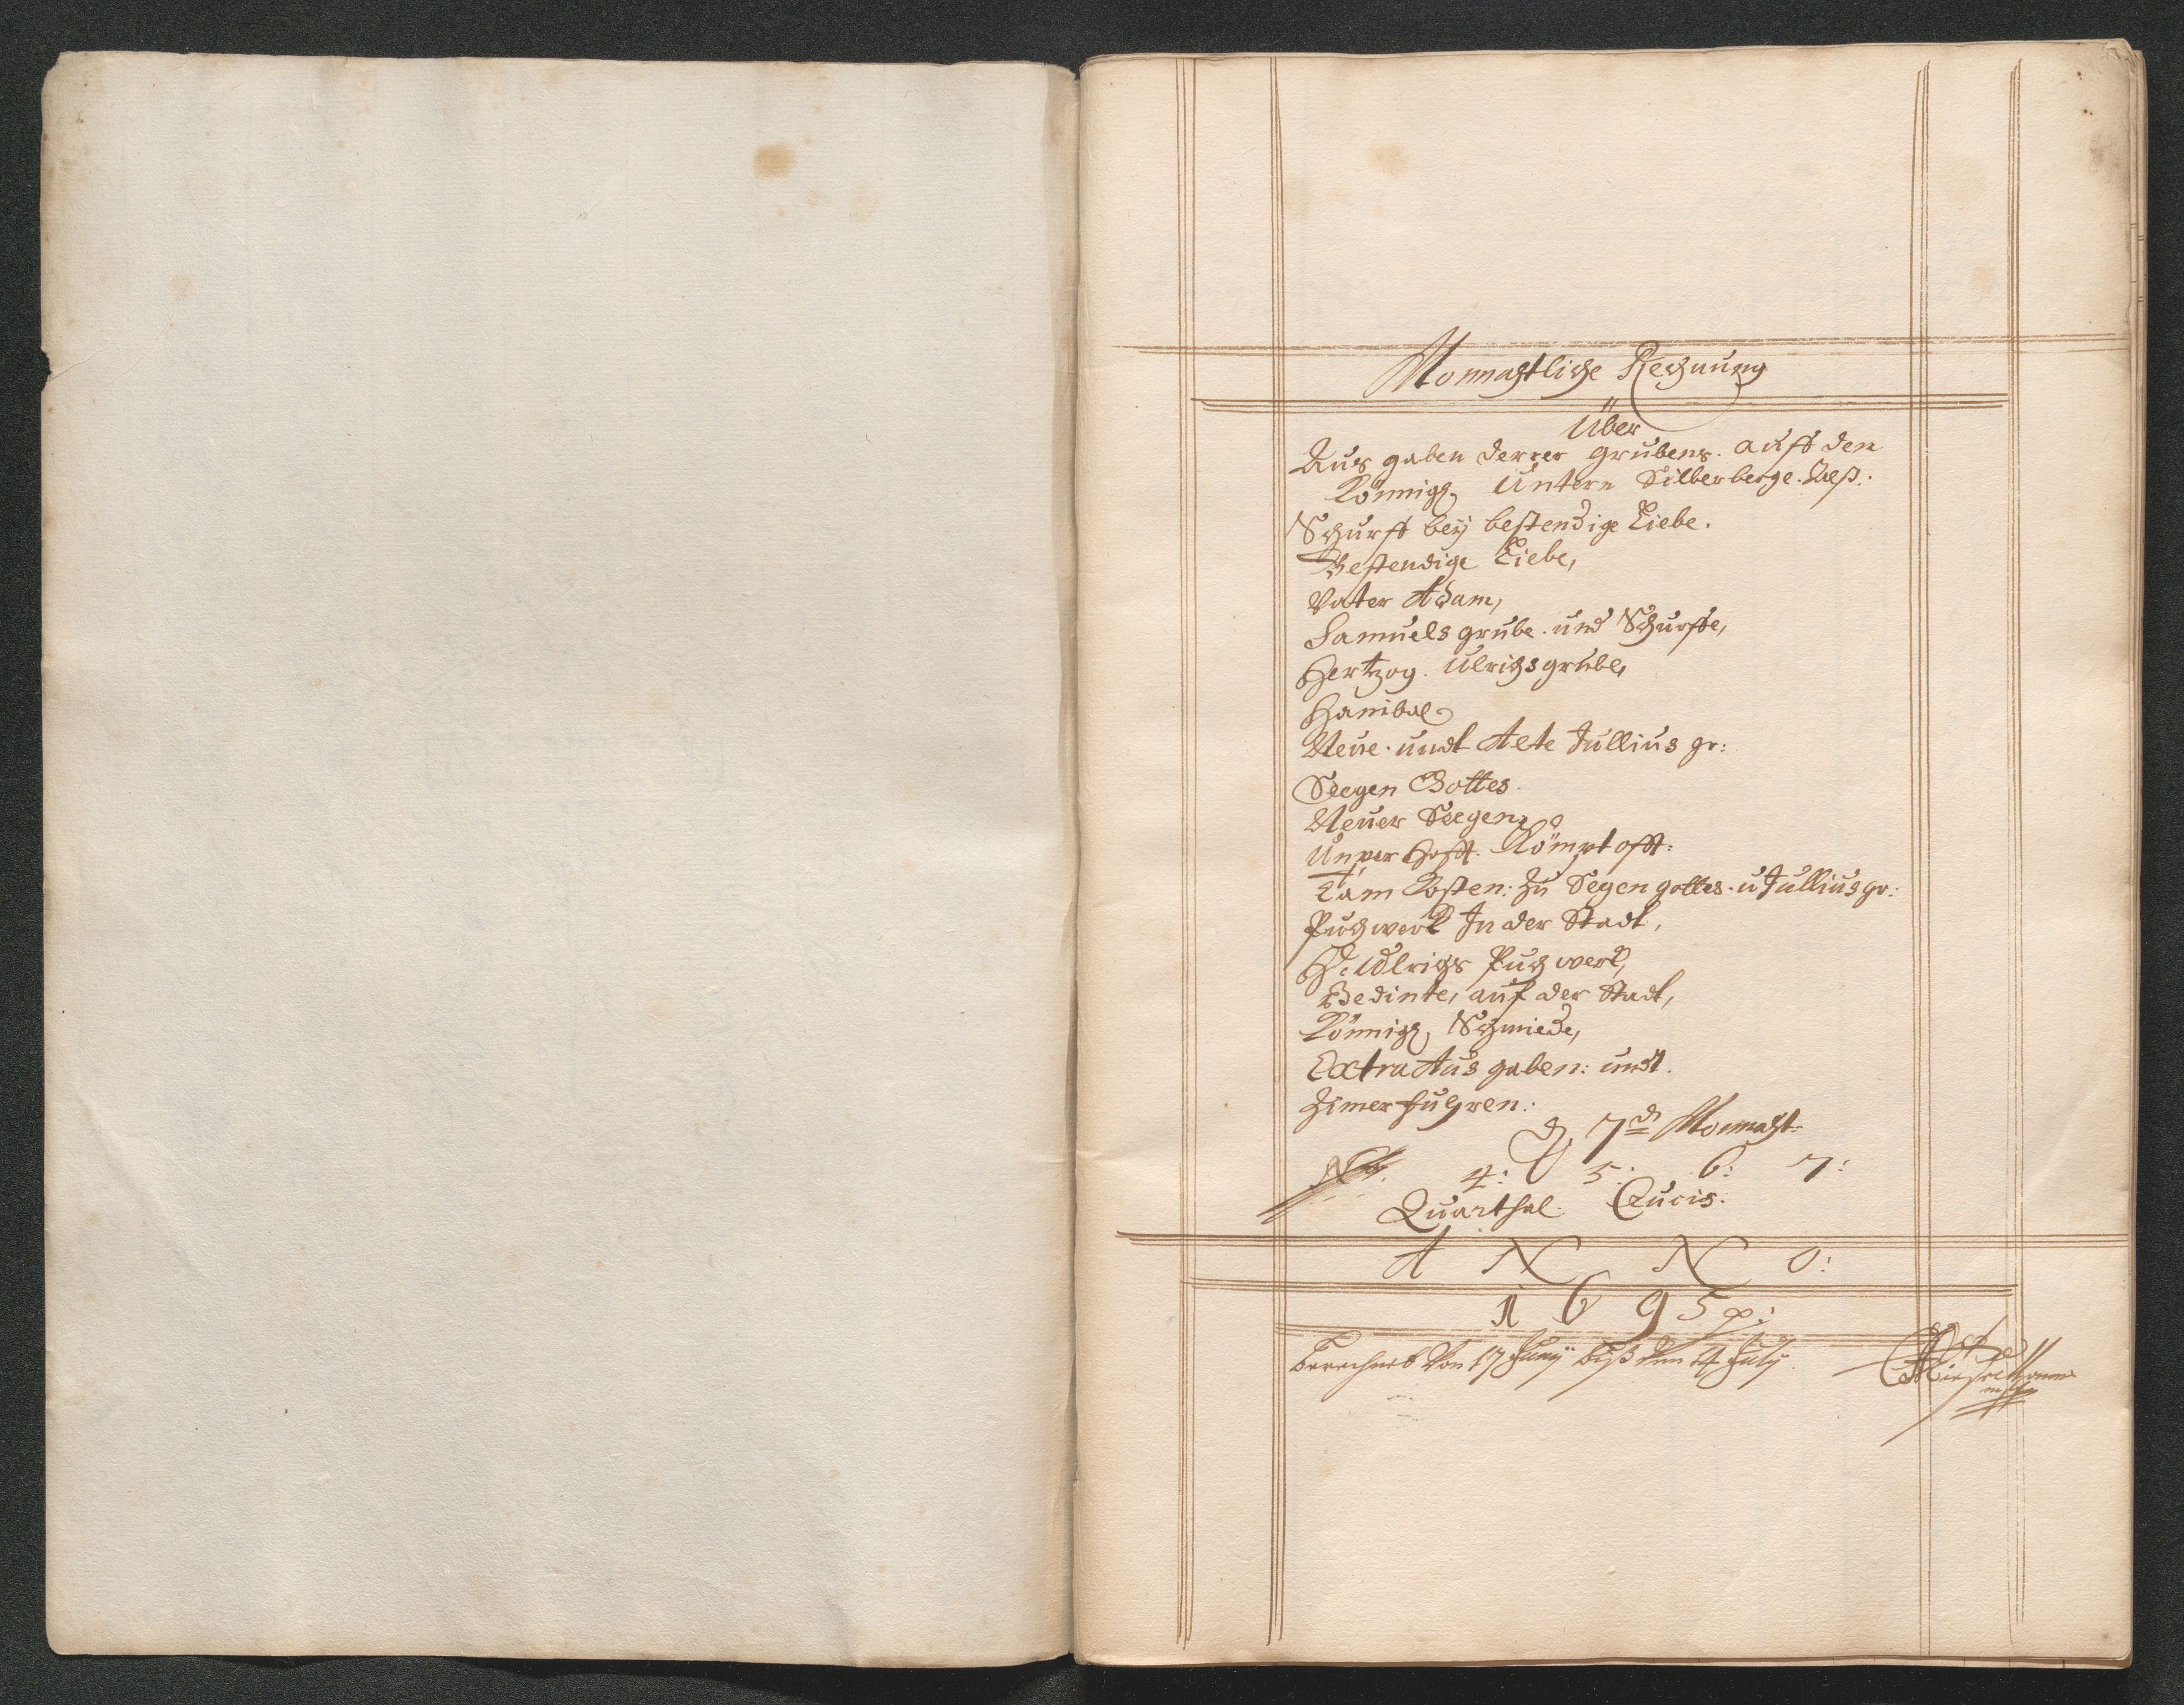 Monnahtliche Rechnung
Über
Aus gaben derrer grubens. auff den
Könnigl. Untern Silberberge. Als:.
Schurff beÿ bestendige Liebe.
Bestendige Liebe,
Vater Adam,
Samuels grube. und Schurffe,
Hertzog. Ulrichs grube,
Hanibal
Neue. undt Alte Jullius gr:
Seegen Gottes.
Neuer Seegen,
Unver hofft. Kömpt offt:
Kosten: zu Segen gottes. u Jullius gr:
Puchwerk In der Stadt,
H. Ullrichs Puch werk,
Bedinte, auf der Stadt,
Könnigl. Schmiede,
Extra Aus gaben: undt.
Zimer fuhren:.
D. 7d Monnaht:
No. 4: 5: 6: 7:
Quarthal. Crucis:
A N N O:
1695 p:
Berechnet Von 17 Junÿ biß den 14 Julÿ.